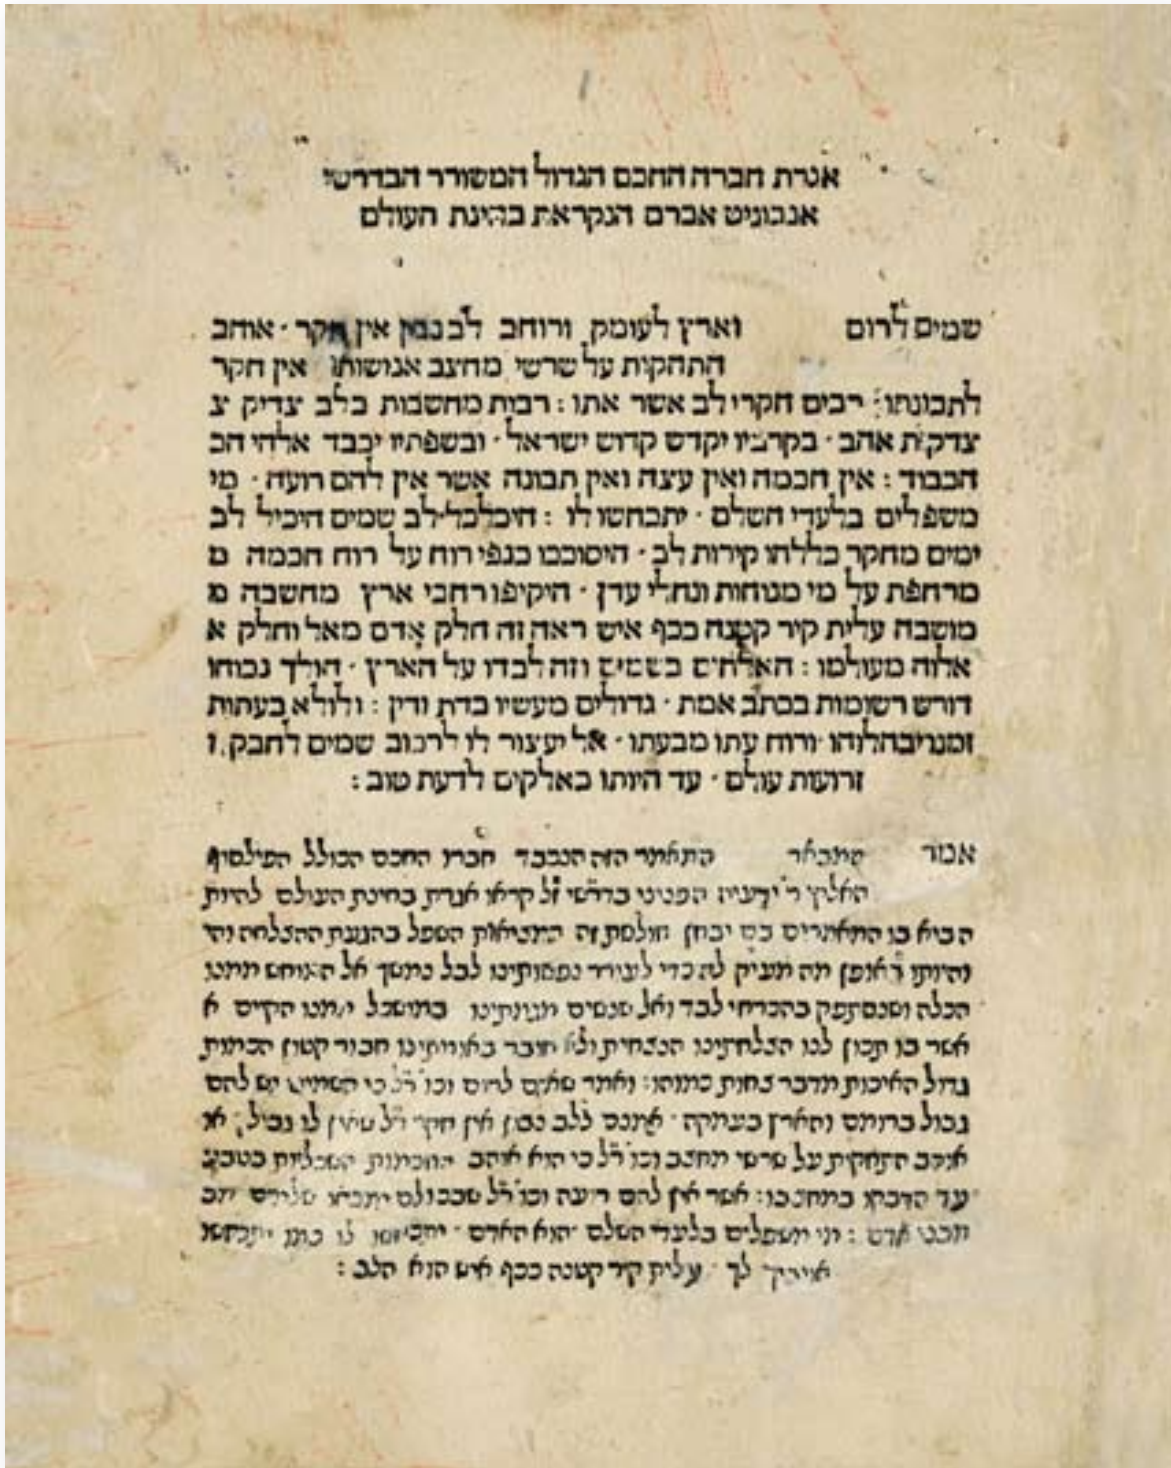 אגרת חברה החכם הגדול המשורר הבדרשי
אנבוניט אברם הנקראת בחינת העולם
שמים לרום וארץ לעומק ורוחב לב נבון אין חקר · אוהב
התחקות על שרשי מחצב אנושותו אין חקר
לתבונתו : רבים חקרי לב אשר אתו : רבות מחשבות בלב צדיק צ
צדקת אהב · בקרביו יקדס קדוש ישראל · ובשפתיו יכבד אלהי הכ
הכבוד : אין חכמה ואין עצה ואין תבונה אשר אין להם רועה · מי
משפלים בלעדי השלם · יתכחשו לו : היכלכל לב שמים היכיל לב
ימים מחקר כללהו קירות לב · היסוככו כנפי רוח על רוח חכמה מ
מרחפת על מי מנוחות ונחלי עדן · היקיפו רחבי ארץ מחשבה מ
מושבה עלית קיר קטנה ככף איש ראה זה חלק אדם מאל וחלק א
אלוה מעולמו : האלהים בשמים וזה לבדו על הארץ · הולך נכוחו
דורש רשומות בכתב אמת · גדולים מעשיו בדת ודין : ולולא בעתות
זמנו יבהלוהו ורוח עתו מבעתו · אל יעצור לו לרכוב שמים לחבק ז
זרועות עולם · עד היותו כאלקים לדעת טוב :
אמר המבאר התאמר הזה הנכבד חברו החכם הכולל הפילסוף
האלץ ר ידעיה הפניני בדרשי זל קראו אגרת בחינת העולם להיות
הביא בו המאמרים בם יבחן חולסת זה המציאות השפל בהגעת ההצלחה והי
והיותו מה מעיק לה כדי לעורר נפשותינו לבל נמשך אל ממנו
הכלה ושנסתפק בהכרחי לבד ואל שנשים מגמתינו במושכל ממנו הקיים א
אשר בו תכון לנו הצלחתינו הנצחית ולא חובר באומתינו חבור קטון הכמות
גדול האיכות מדבר צחות כמוהו : ואמר שמים לרום וכו רל כי השמים יש להם
גבול ברומם והארץ בעמקה · אמנם ללב נבון אין חקר רל שאין לו גבול א
אוהב התחקות על שרשי מחצב וכו רל כי הוא אוהב החכמות השכליות בטבע
עד הדבקו במחצבו : אשר אין להם רועה וכו רל שבכולם
אדם : מי משפלים בלעדי השלם הוא האדם · לו כמו
לך · עלית קיר קטנה ככף איש הוא הלב :